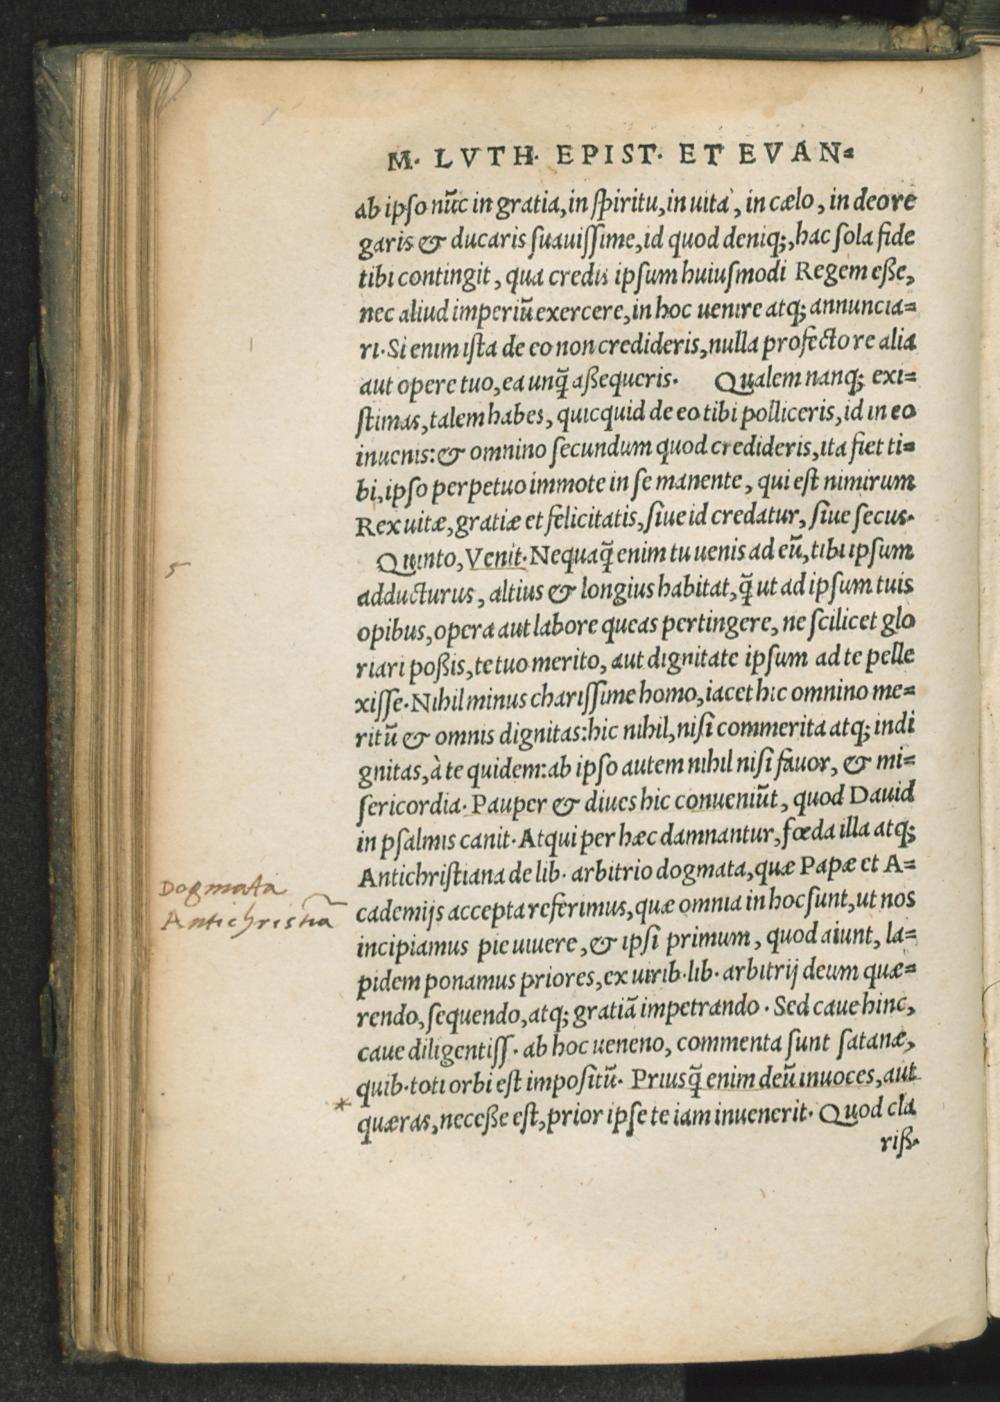 M. LVTH. EPIST. ET EVAN=
ab ipso nũc in gratia, in spiritu, in uita, in cælo, in deo re
garis & ducaris suauissime, id quod deniq;, hac sola fide
tibi contingit, qua credis ipsum huiusmodi Regem eße,
nec aliud imperiũ exercere, in hoc uenire atq; annuncia=
ri. Si enim ista de eo non credideris, nulla profecto re alia
aut opere tuo, ea unq̃ aßequeris. Qualem nanq; exi=
stimas, talem habes, quicquid de eo tibi polliceris, id in eo
inuenis: & omnino secundum quod credideris, ita fiet ti=
bi, ipso perpetuo immote in se manente, qui est nimirum
Rex uitæ, gratiæ et felicitatis, siue id credatur, siue secus.
5
Quinto, Venit. Nequaq̃ enim tu uenis ad eũ, tibi ipsum
adducturus, altius & longius habitat, q̃ ut ad ipsum tuis
opibus, opera aut labore queas pertingere, ne scilicet glo
riari poßis, te tuo merito, aut dignitate ipsum ad te pelle
xisse. Nihil minus charissime homo, iacet hic omnino me=
ritũ & omnis dignitas: hic nihil, nisi commerita atq; indi
gnitas, à te quidem: ab ipso autem nihil nisi fauor, & mi=
sericordia. Pauper & diues hic conueniũt, quod Dauid
in psalmis canit. Atqui per hæc damnantur, fœda illa atq;
Antichristiana de lib. arbitrio dogmata, quæ Papæ et A=
Dogmata
Antichristiã
cademijs accepta referimus, quæ omnia in hoc sunt, ut nos
incipiamus pie uiuere, & ipsi primum, quod aiunt, la=
pidem ponamus priores, ex uirib. lib. arbitrij deum quæ=
rendo, sequendo, atq; gratiã impetrando. Sed caue hinc,
caue diligentiss. ab hoc ueneno, commenta sunt satanæ,
quib. toti orbi est impositũ. Priusq̃ enim deũ inuoces, aut
*
quæras, neceße est, prior ipse te iam inuenerit. Quod cla
riß.